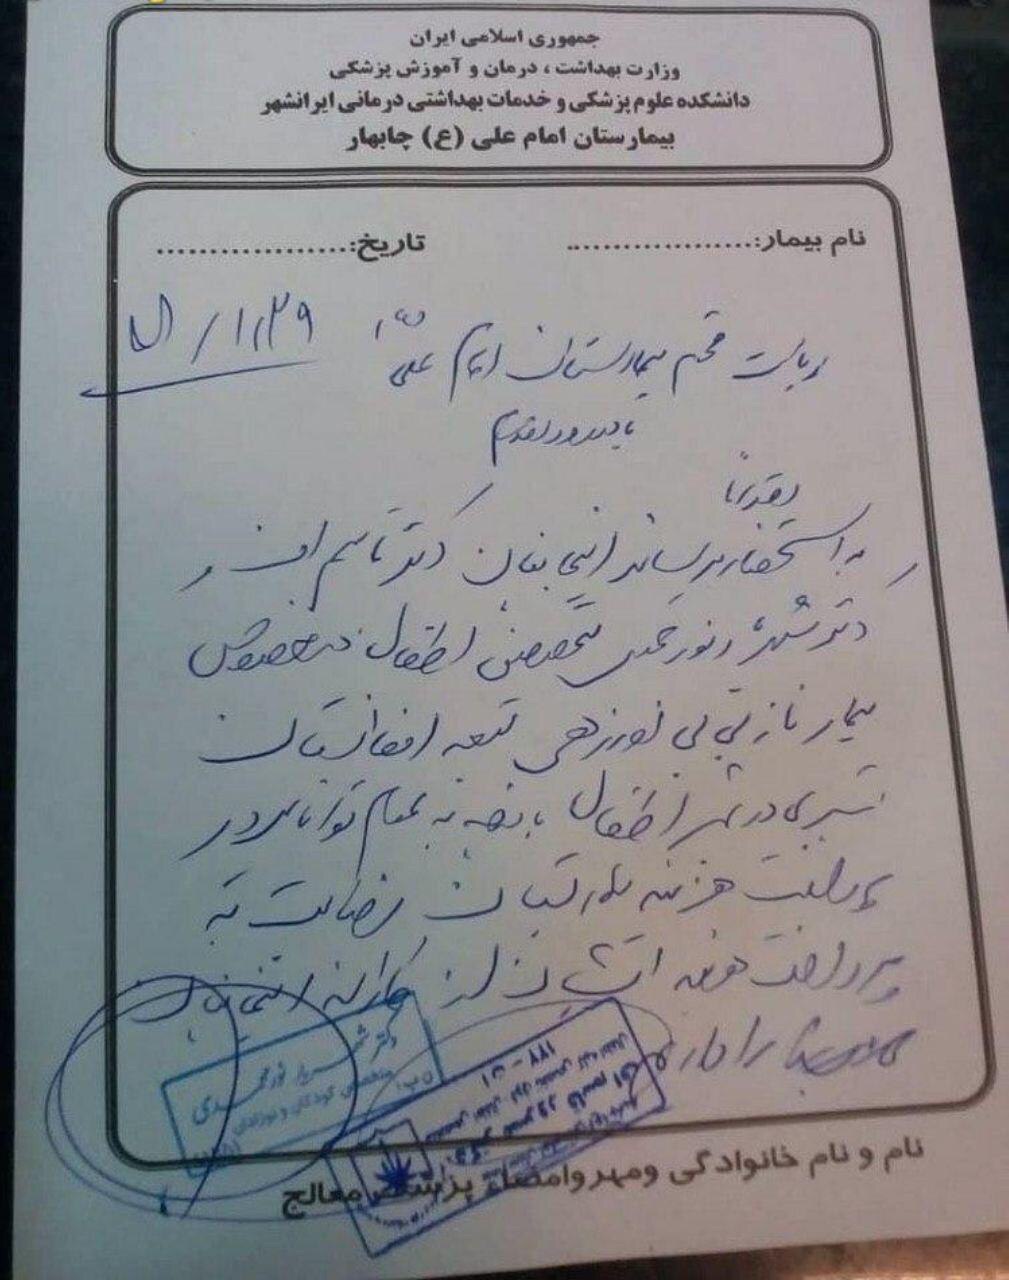 جمهوری اسلامی ایران
وزارت بهداشت ، درمان و آموزش پزشکی
دانشکده علوم پزشکی و خدمات بهداشتی درمانی ایرانشهر
بیمارستان امام علی (ع) چابهار
نام بیمار:................... تاریخ:...................
ریاست محترم بیمارستان امام علی (ع)
با درود و احترام
احتراماً
به استحضار میرساند اینجانبان دکتر قاسم امنی و
دکتر شهریار نورمحمدی متخصصین اطفال در خصوص
بیمار نازبی بی نورزهی تبعه افغانستان
بستری در بخش اطفال با توجه به عدم توانایی در
پرداخت هزینه بیمارستان رضایت به
پرداخت هزینه ایشان از کارانه اینجانبان
را داریم
دکتر شهریار نورمحمدی
متخصص کودکان و نوزادان
نام و نام خانوادگی ومهر وامضاء پزشک معالج